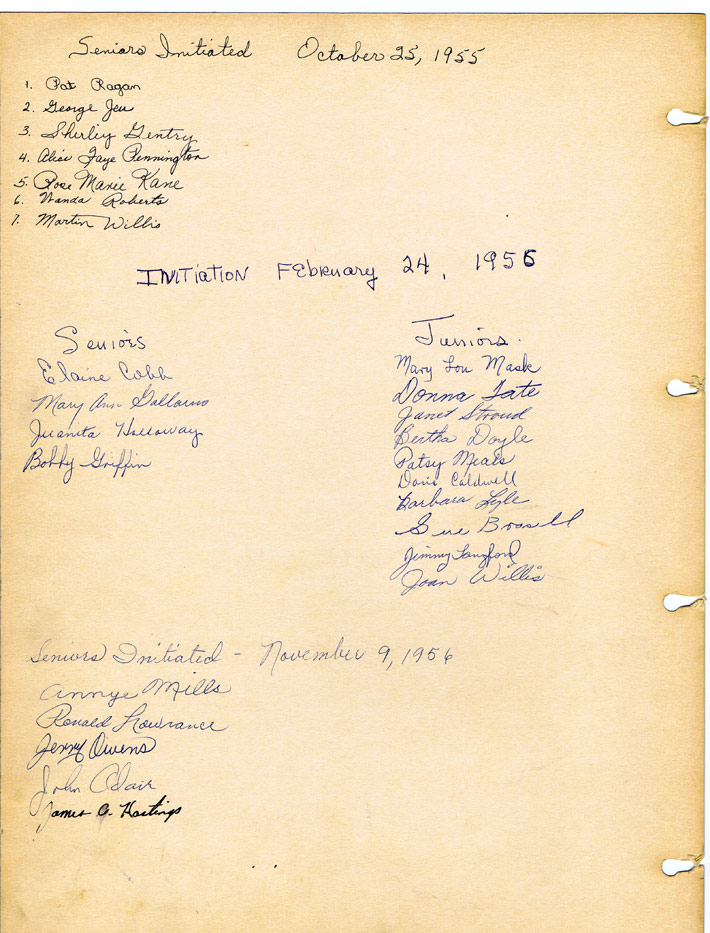 Seniors Initiated October 25, 1955
1. Pat Ragan
2. George Jeu
3. Shirley Gentry
4. Alice Faye Pennington
5. Rose Marie Kane
6. Wanda Roberts
7. Martin Willis
INITIATION FEbruary 24, 1956
Seniors
Elaine Cobb
Mary Ann
Juanita Holloway
Bobby Griffin
Juniors.
Mary Lou Mask
Donna Tate
Janet Stroud
Bertha Doyle
Patsy Meals
Doris Caldwell
Barbara Lyle
Sue
Jimmy Langford
Joan Willis
Seniors Initiated - November 9, 1956
Annye Mills
Ronald Lowrance
Jerry Owens
John Adair
James C. Hastings